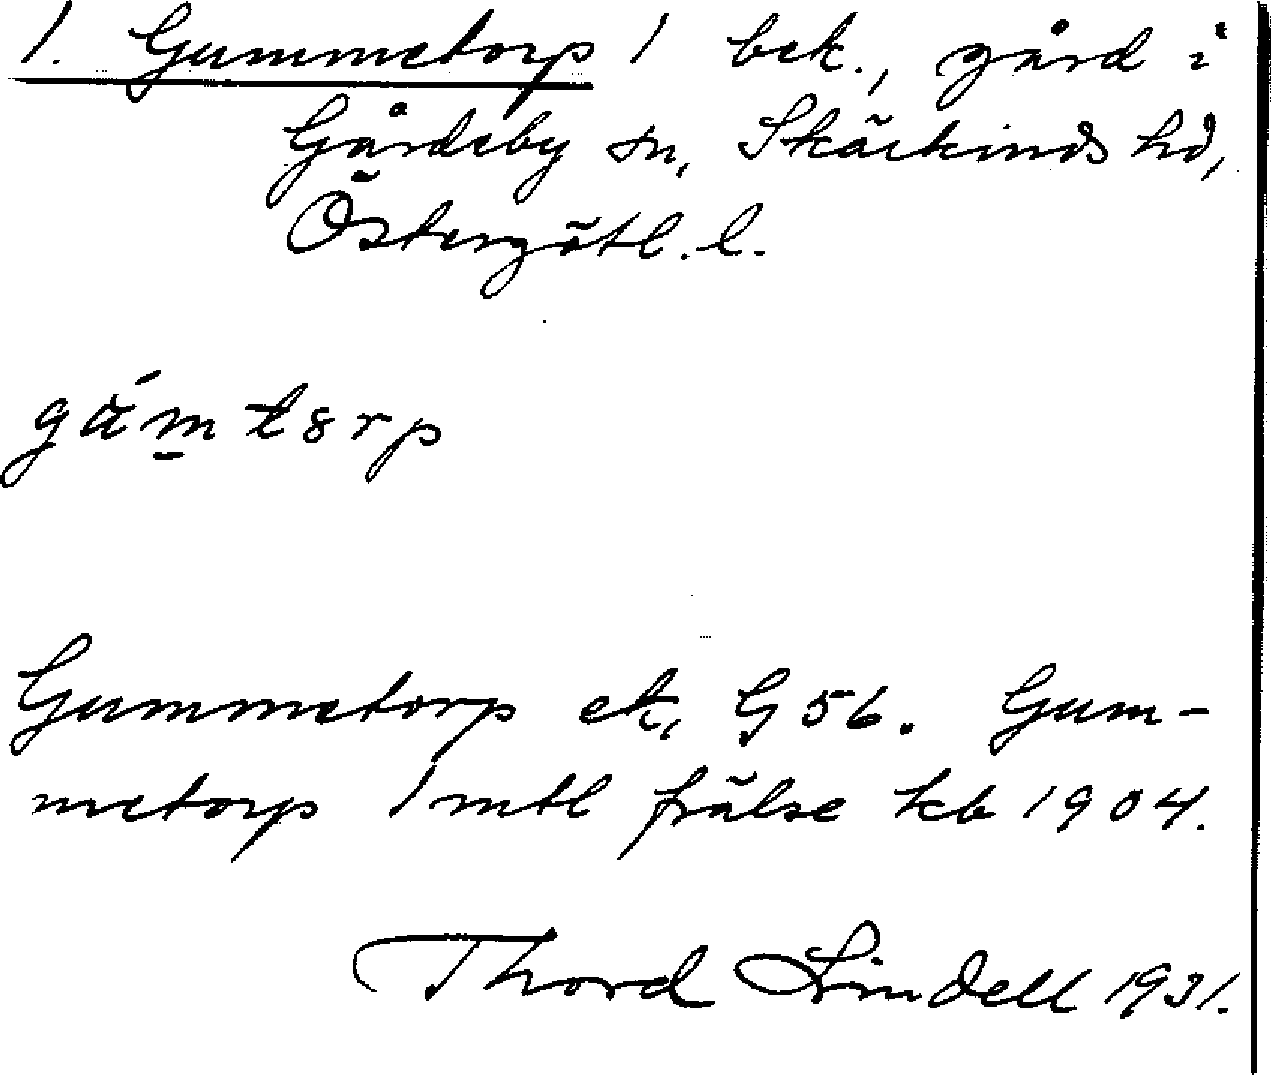 1. Gummetorp 1 bek., gård i
Gårdeby sn, Skärkinds hd,
Östergötl. l.
gám̱tørp
Gummetorp ek, G 56. Gum-
metorp 1 mtl frälse kb 1904.
Thord Lindell 1931.